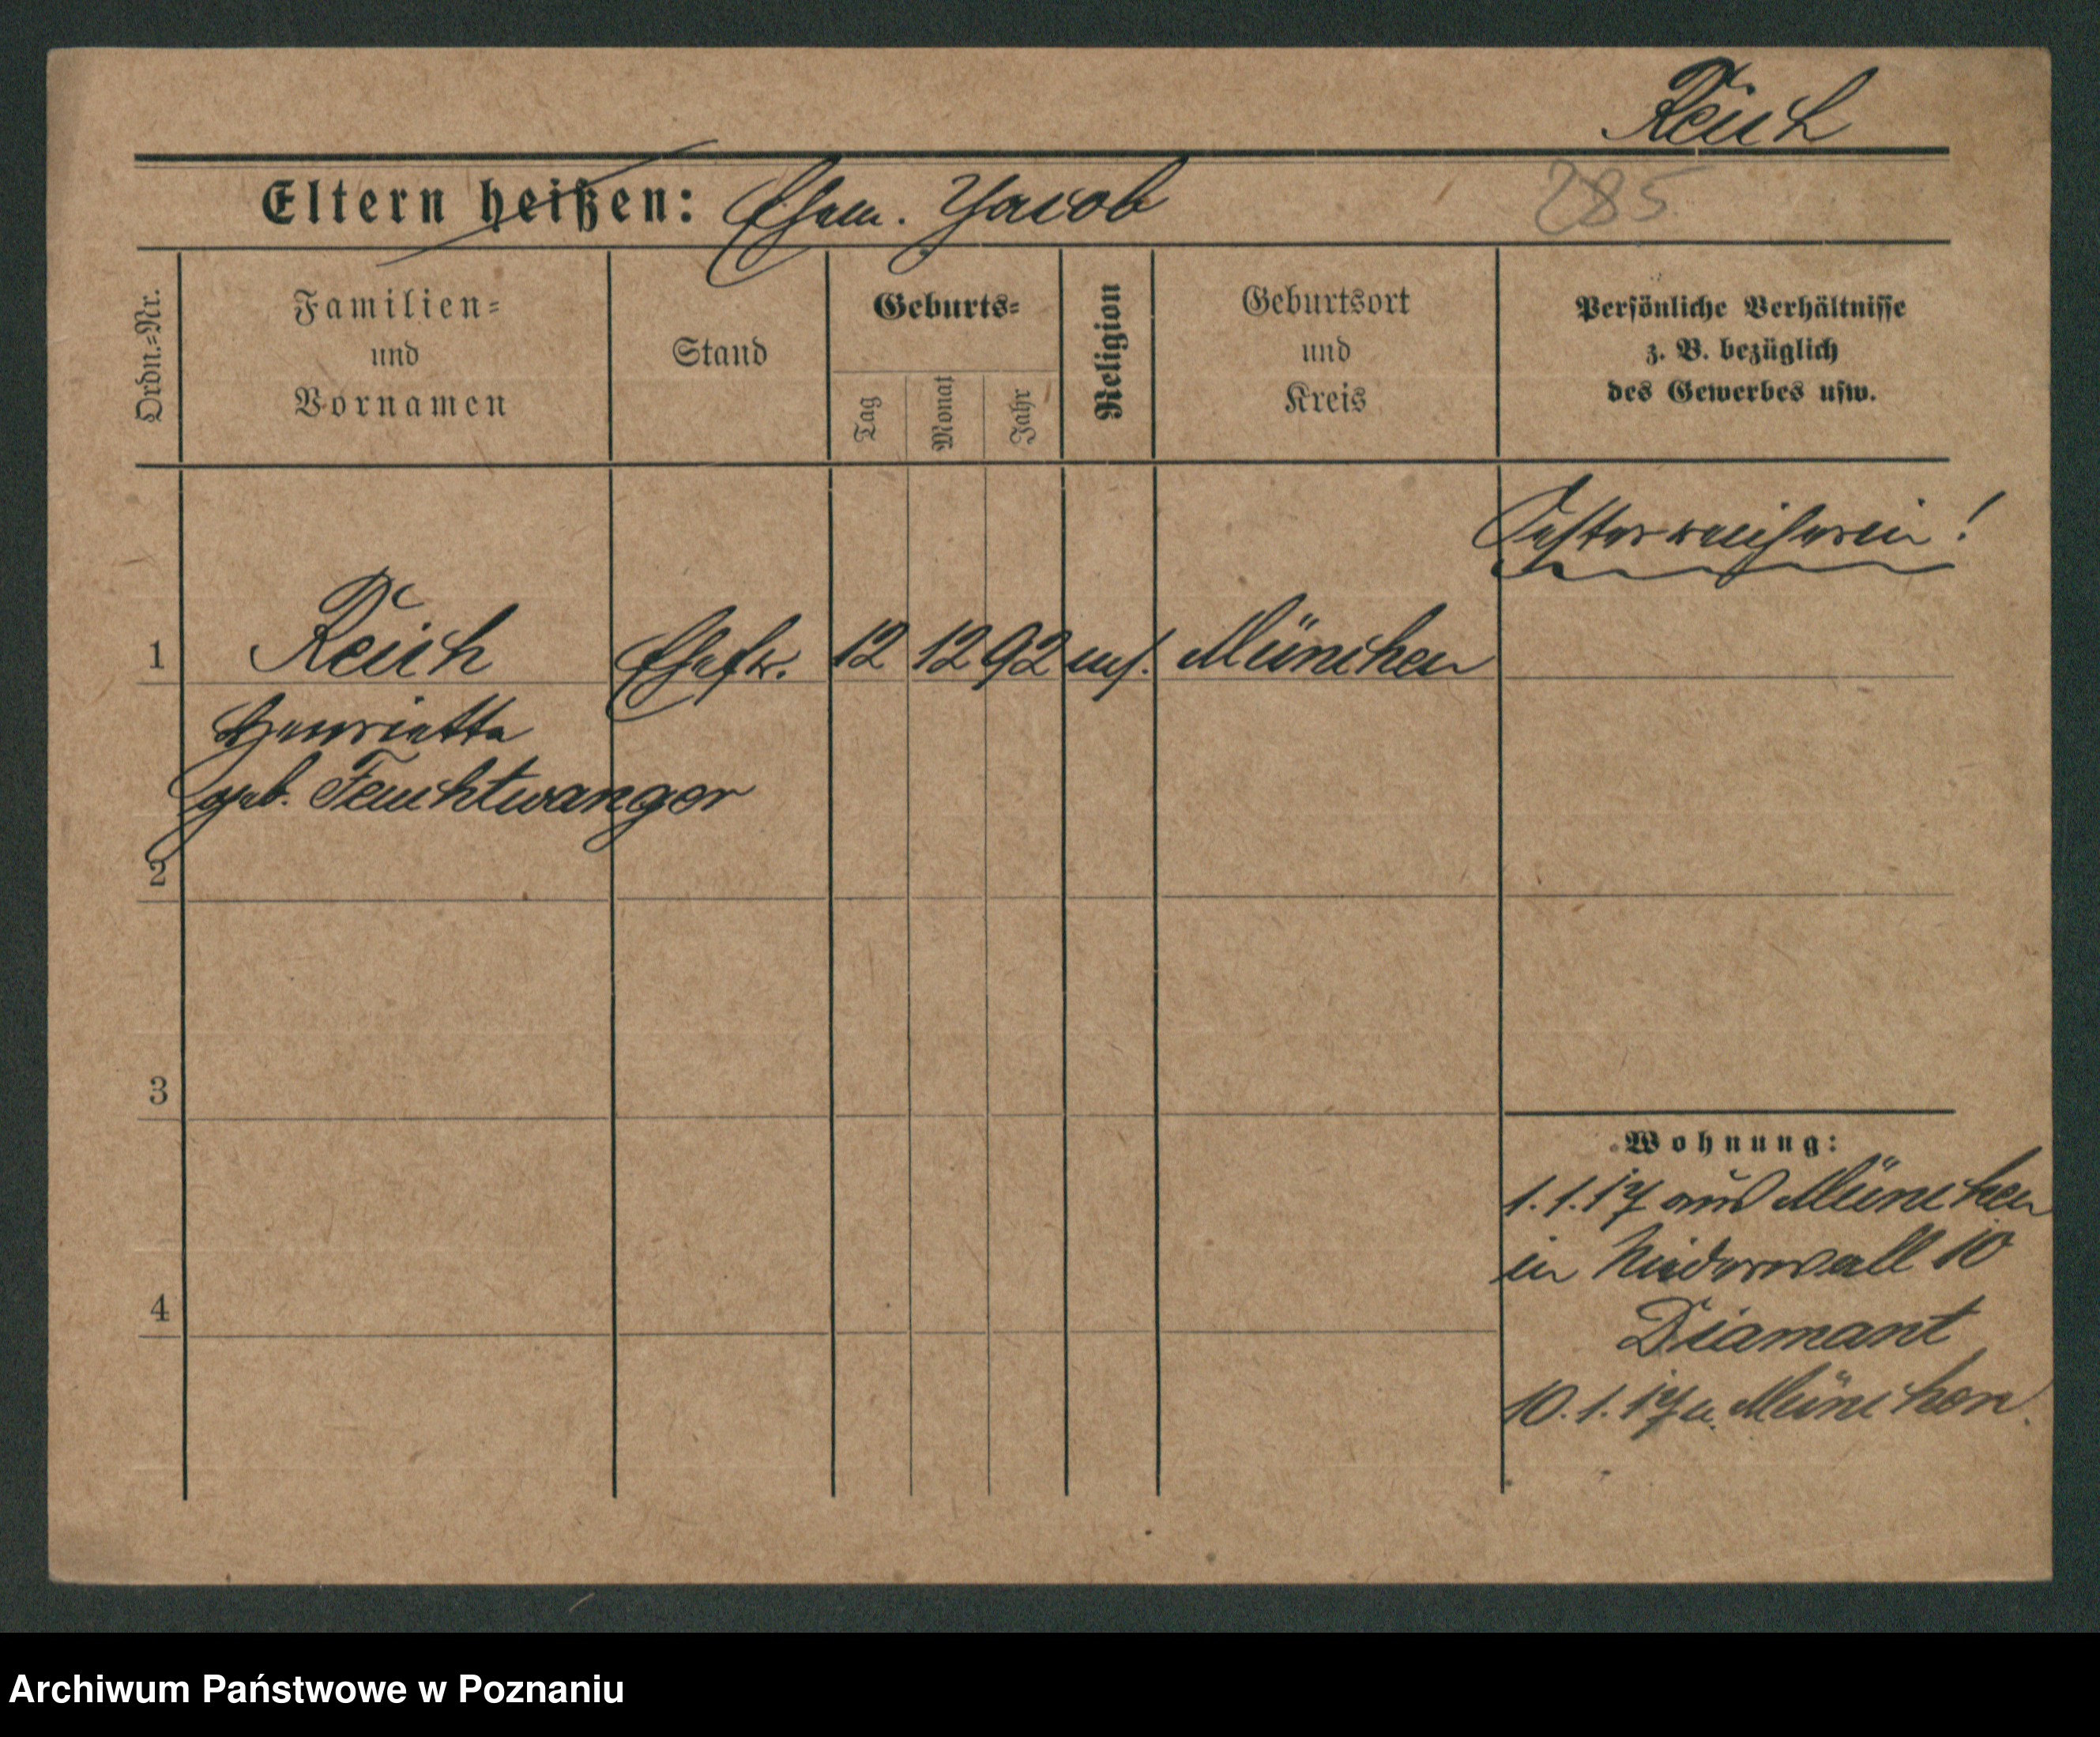 Reich
Eltern heißen: Ehem. Jacob
285
Ordn.=Nr.
Familien=
und
Vornamen
Stand
Geburts=
Tag
Monat
Jahr
Religion
Geburtsort
und
Kreis
Persönliche Verhältnisse
z. B. bezüglich
des Gewerbes usw.
Oesterreicherin!
1 Reich Ehefr. 12 12 92 mos. München
Henriette
geb. Feuchtwanger
2
3
4
Wohnung:
1.1.17 aus München
in Niederwall 10
Diamant
10.1.17 n. München.
Archiwum Państwowe w Poznaniu